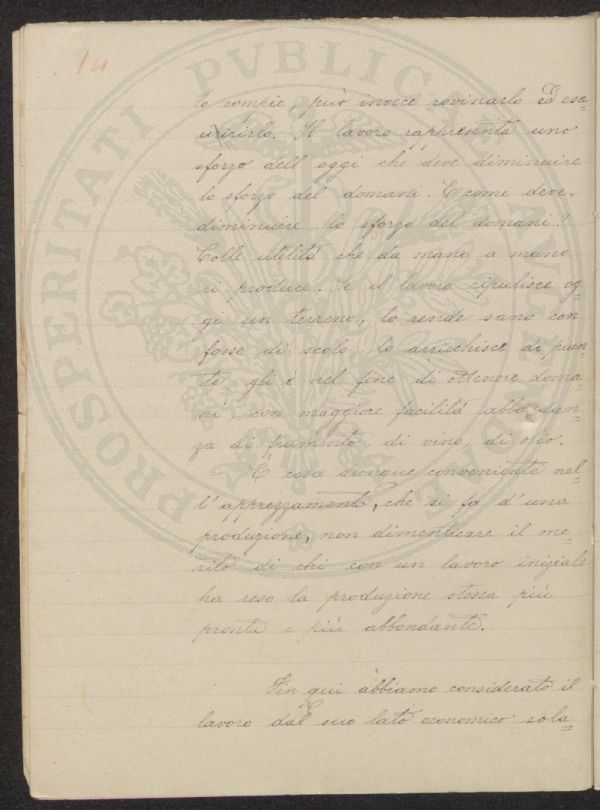 14
lo compie, può invece rovinarlo ed esa=
urirlo. Il lavoro rappresenta uno
sforzo dell'oggi che deve diminuire
lo sforzo del domani. E come deve
diminuire lo sforzo del domani?
Colle utilità che da mano a mano
ci produce. Se il lavoro ripulisce og=
gi un terreno, lo rende sano con
fosse di scolo, lo arricchisce di pian=
te gli è nel fine di ottenere doma=
ni, con maggiore facilità abbondan=
za di frumento, di vino, di olio.
È cosa dunque conveniente nel=
l'apprezzamento, che si fa d'una
produzione, non dimenticare il me=
rito di chi con un lavoro iniziale
ha reso la produzione stessa più
pronta e più abbondante.
Fin qui abbiamo considerato il
lavoro dal suo lato economico sola=
PROSPERITATI PVBLICAE